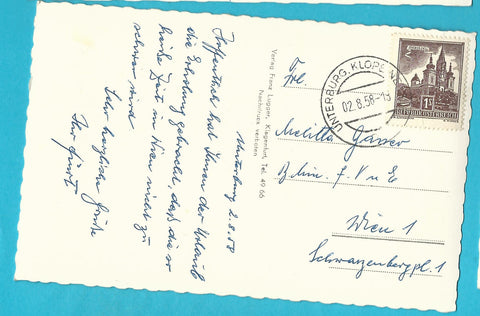 Unterburg 2.8.58
Hoffentlich hat Ihnen der Urlaub
die Erholung gebracht, daß die so
heiße Zeit in Wien nicht zu
schwer wird
Sehr herzliche Grüße
Ihr
Verlag Franz Logper, Klagenfurt, Tel. 49 66
Nachdruck verboten
UNTERBURG, KLOPEIN
02.8.58-13
1S
REPUBLIK ÖSTERREICH
Frl.
Melitta Gasser
Wien 1
Schwarzenbergpl. 1